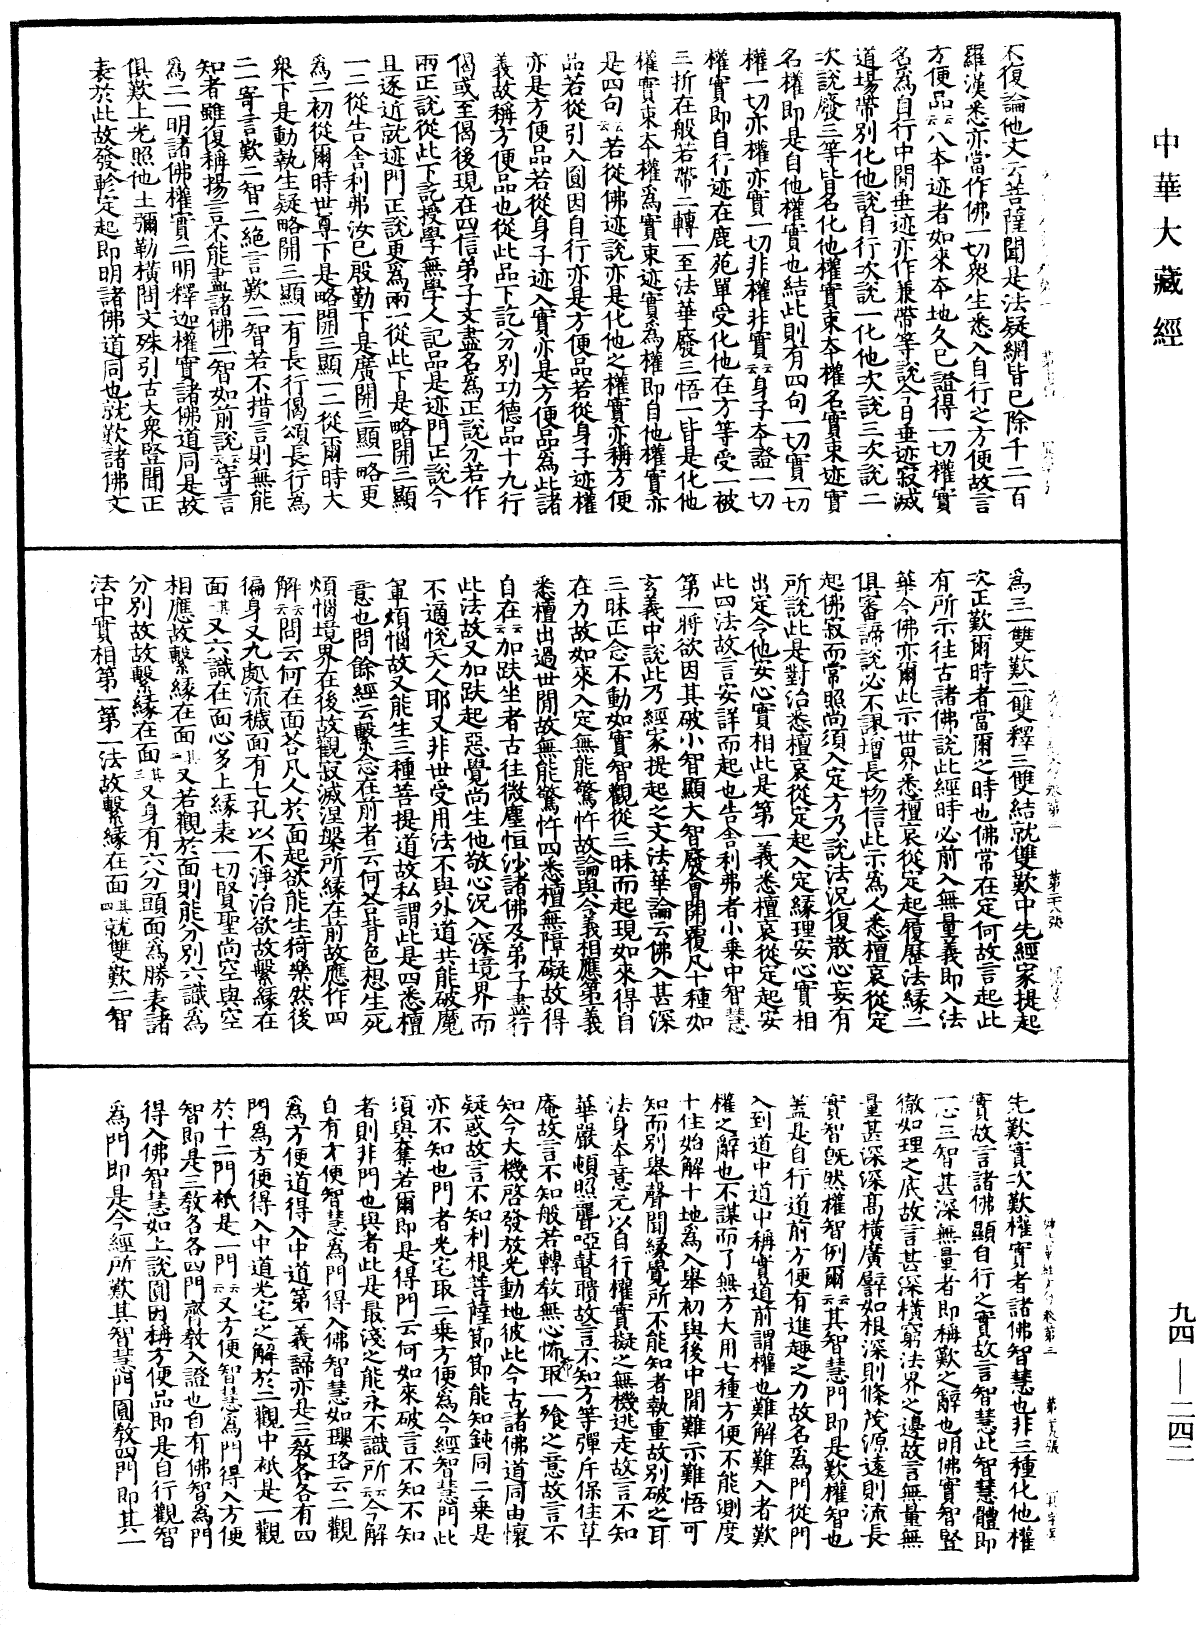 中華大藏經
不復論他文云菩薩聞是法疑網皆已除千二百
羅漢悉亦當作佛一切衆生悉入自行之方便故言
方便品云云八本迹者如來本地久已證得一切權實
名為自行中間垂迹亦作兼帶等說今日垂迹寂滅
道場帶別化他說自行次說一化他次說三次說二
次說廢三等皆名化他權實束本權名實束迹實
名權即是自他權實也結此則有四句一切實一切
權一切亦權亦實一切非權非實云云身子本證一切
權實即自行迹在鹿苑單受化他在方等受一被
三折在般若帶二轉一至法華廢三悟一皆是化他
權實束本權為實束迹實為權即自他權實亦
是四句云云若從佛迹說亦是化他之權實亦稱方便
品若從引入圓因自行亦是方便品若從身子迹權
亦是方便品若從身子迹入實亦是方便品為此諸
義故稱方便品也從此品下訖分別功德品十九行
偈或至偈後現在四信弟子文盡名為正說分若作
兩正說從此下訖授學無學人記品是迹門正說今
且逐近就迹門正說更為兩一從此下是略開三顯
一二從告舍利弗汝已殷勤下是廣開三顯一略更
為二初從爾時世尊下是略開三顯一二從爾時大
衆下是動執生疑略開三顯一有長行偈頌長行為
二一寄言歎二智二絕言歎二智若不措言則無能
知者雖復稱揚言不能盡諸佛二智如前說云云寄言
為二一明諸佛權實二明釋迦權實諸佛道同是故
俱歎上光照他土彌勒橫問文殊引古大衆竪聞正
表於此故發軫定起即明諸佛道同也就歎諸佛文
為三一雙歎二雙釋三雙結就雙歎中先經家提起
次正歎爾時者當爾之時也佛常在定何故言起此
有所示往古諸佛說此經時必前入無量義即入法
華今佛亦爾此示世界悉檀哀從定起履歷法緣二
俱審諦說必不謬增長物信此示為人悉檀哀從定
起佛寂而常照尚須入定方乃說法況復散心妄有
所說此是對治悉檀哀從定起入定緣理安心實相
出定令他安心實相此是第一義悉檀哀從定起安
此四法故言安詳而起也告舍利弗者小乘中智慧
第一將欲因其破小智顯大智廢會開覆凡十種如
玄義中說此乃經家提起之文法華論云佛入甚深
三昧正念不動如實智觀從三昧而起現如來得自
在力故如來入定無能驚忤故論與今義相應第一義
悉檀出過世間故無能驚忤四悉檀無障礙故得
自在云云加趺坐者古往微塵恒沙諸佛及弟子盡行
此法故又加趺起惡覺尚生他敬心況入深境界而
不適悅天人耶又非世受用法不與外道共能破魔
軍煩惱故又能生三種菩提道故私謂此是四悉檀
意也問餘經云繫念在前者云何答背色想生死
煩惱境界在後故觀寂滅涅槃所緣在前故應作四
解云云問云何在面答凡人於面起欲能生猗樂然後
徧身又九處流穢面有七孔以不淨治欲故繫緣在
面其一又六識在面心多上緣表一切賢聖尚空與空
相應故繫緣在面其二又若觀於面則能分別六識為
分別故故繫緣在面其三又身有六分頭面為勝表諸
法中實相第一第一法故繫緣在面其四就雙歎二智
先歎實次歎權實者諸佛智慧也非三種化他權
實故言諸佛顯自行之實故言智慧此智慧體即
一心三智甚深無量者即稱歎之辭也明佛實智竪
徹如理之底故言甚深橫窮法界之邊故言無量無
量甚深深高橫廣譬如根深則條茂源遠則流長
實智既然權智例爾云云其智慧門即是歎權智也
蓋是自行道前方便有進趣之力故名為門從門
入到道中道中稱實道前謂權也難解難入者歎
權之辭也不謀而了無方大用七種方便不能測度
十住始解十地為入舉初與後中間難示難悟可
知而別舉聲聞緣覺所不能知者執重故別破之耳
法身本意元以自行權實擬之無機逃走故言不知
華嚴頓照聾啞瞽瞶故言不知方等彈斥保住草
庵故言不知般若轉教無心悕取一飡之意故言不
知今大機啓發放光動地彼此今古諸佛道同由懷
疑惑故言不知利根菩薩節節能知鈍同二乘是
亦不知也門者光宅取二乘方便為今經智慧門此
須與奪若爾即是得門云何如來破言不知不知
者則非門也與者此是最淺之能永不識所云云今解
自有才便智慧為門得入佛智慧如瓔珞云二觀
為方便道得入中道第一義諦亦是三教各各有四
門為方便得入中道光宅之解於二觀中秖是一觀
於十二門秖是一門云云又方便智慧為門得入方便
智即是三教各各四門齊教入證也自有佛智為門
得入佛智慧如上說圓因稱方便品即是自行觀智
為門即是今經所歎其智慧門圓教四門即其一
九四—二四二